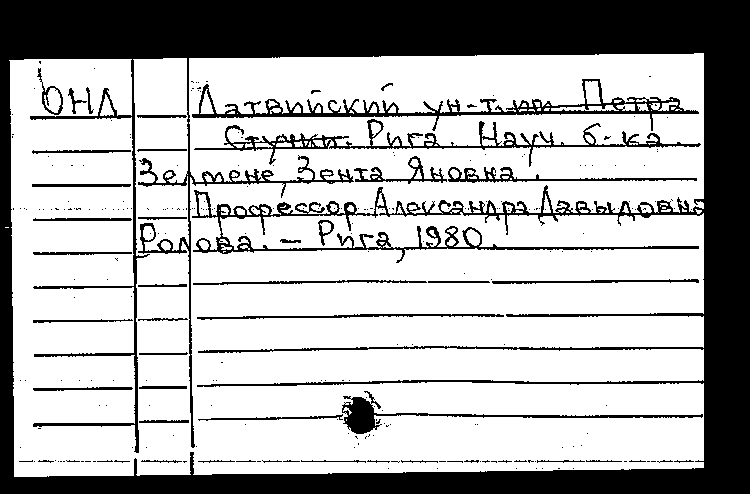 ОНЛ Латвийский ун-т им Петра
Стучки. Рига. Науч. б-ка.
Зелмене, Зента Яновна.
Профессор Александра Давыдовна
Ролова. — Рига, 1980.